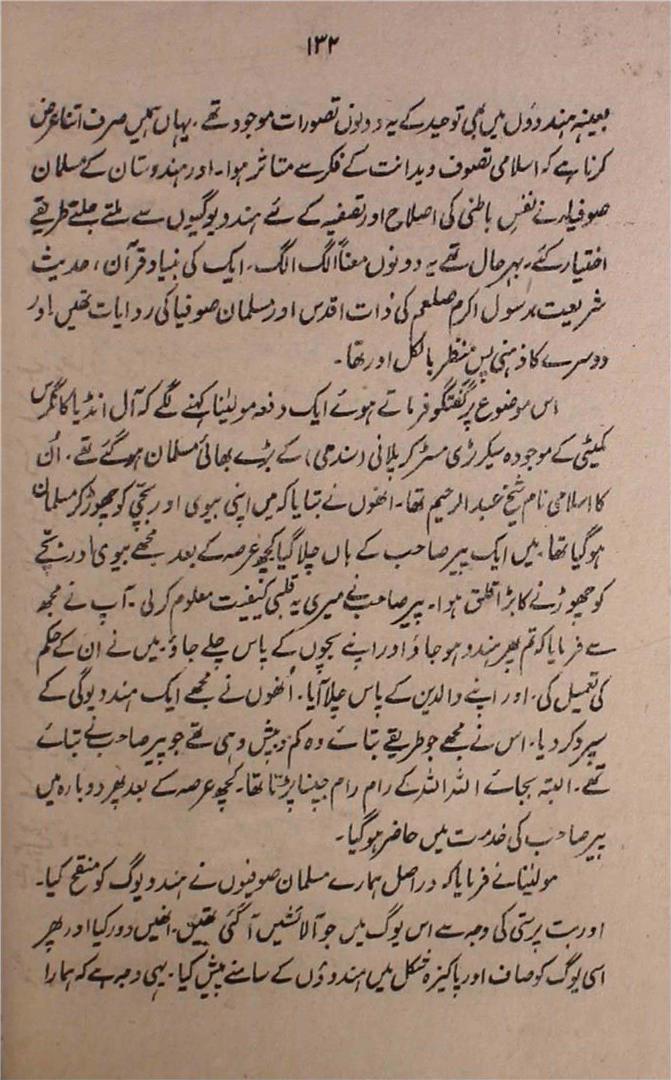 ۱۳۲
بعینہٖ ہندوؤں میں بھی توحید کے یہ دونوں تصورات موجود تھے۔ یہاں ہمیں صرف اتنا عرض
کرنا ہے کہ اسلامی تصوف ویدانت کے فکر سے متاثر ہوا۔ اور ہندوستان کے مسلمان
صوفیاء نے نفس باطنی کی اصلاح اور تصفیہ کے لئے ہندو یوگیوں سے ملتے جلتے طریقے
اختیار کئے۔ بہرحال تھے یہ دونوں معناً الگ الگ۔ ایک کی بنیاد قرآن، حدیث
شریعت، رسول اکرم صلعم کی ذات اقدس اور مسلمان صوفیا کی روایات تھیں، اور
دوسرے کا ذہنی پس منظر بالکل اور تھا۔
اس موضوع پر گفتگو فرماتے ہوئے ایک دفعہ مولیٰنا کہنے لگے کہ آل انڈیا کانگرس
کمیٹی کے موجودہ سیکرٹری مسٹر کرپلانی (سندھی) کے بڑے بھائی مسلمان ہو گئے تھے۔ اُن
کا اسلامی نام شیخ عبدالرحیم تھا۔ انھوں نے بتایا کہ میں اپنی بیوی اور بچّی کو چھوڑ کر مسلمان
ہو گیا تھا۔ میں ایک پیر صاحب کے ہاں چلا گیا کچھ عرصہ کے بعد مجھے بیوی اور بچّے
کو چھوڑنے کا بڑا قلق ہوا۔ پیر صاحب نے میری یہ قلبی کیفیت معلوم کر لی۔ آپ نے مجھ
سے فرمایا کہ تم پھر ہندو ہو جاؤ اور اپنے بچوں کے پاس چلے جاؤ۔ میں نے ان کے حکم
کی تعمیل کی۔ اور اپنے والدین کے پاس چلا آیا۔ اُنھوں نے مجھے ایک ہندو یوگی کے
سپرد کر دیا۔ اس نے مجھے جو طریقے بتائے وہ کم و بیش وہی تھے جو پیر صاحب نے بتائے
تھے۔ البتہ بجائے اللہ اللہ کے رام رام جپنا پڑتا تھا۔ کچھ عرصہ کے بعد پھر دوبارہ میں
پیر صاحب کی خدمت میں حاضر ہو گیا۔
مولیٰنا نے فرمایا کہ دراصل ہمارے مسلمان صوفیوں نے ہندو یوگ کو منقح کیا۔
اور بت پرستی کی وجہ سے اس یوگ میں جو آلائشیں آ گئی تھیں۔ انھیں دور کیا اور پھر
اسی یوگ کو صاف اور پاکیزہ شکل میں ہندوؤں کے سامنے پیش کیا۔ یہی وجہ ہے کہ ہمارا